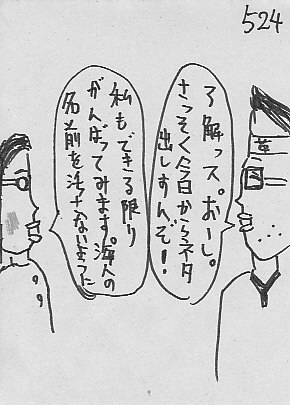 524
了解っス。おーし。
さっそく今日からネタ
出しすんぞ！
私もできる限り
がんばってみます。海人の
名前を汚さないよう